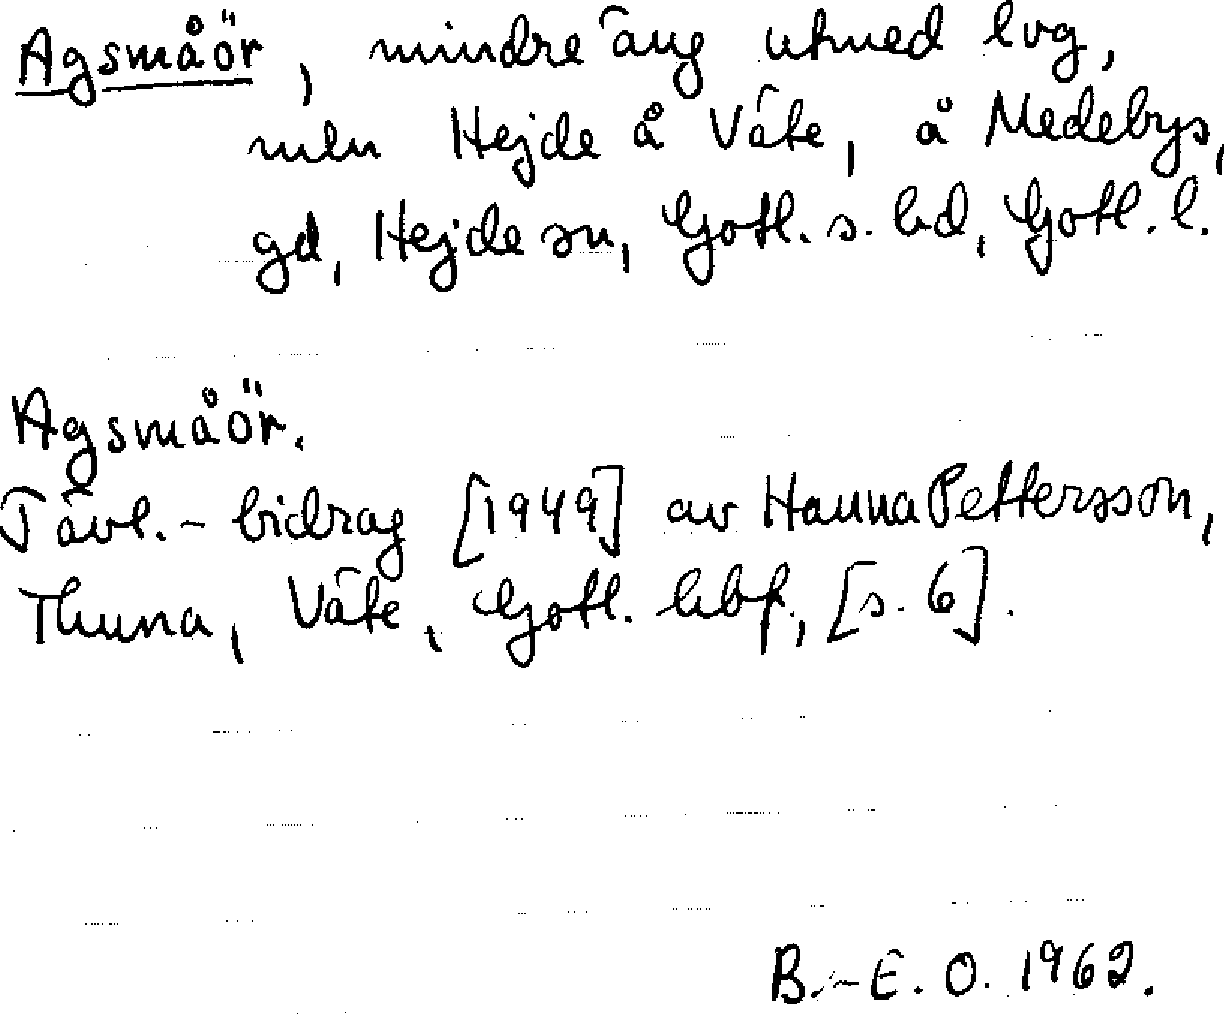 Agsmåör, mindre äng utmed lvg,
mln Hejde å Väte, å Medebys,
gd, Hejde sn, Gotl. s. hd, Gotl. l.
Agsmåör.
Tävl.-bidrag [1949] av Hanna Pettersson,
Thuna, Väte, Gotl. hbf, [s. 6].
B.-E. O. 1962.